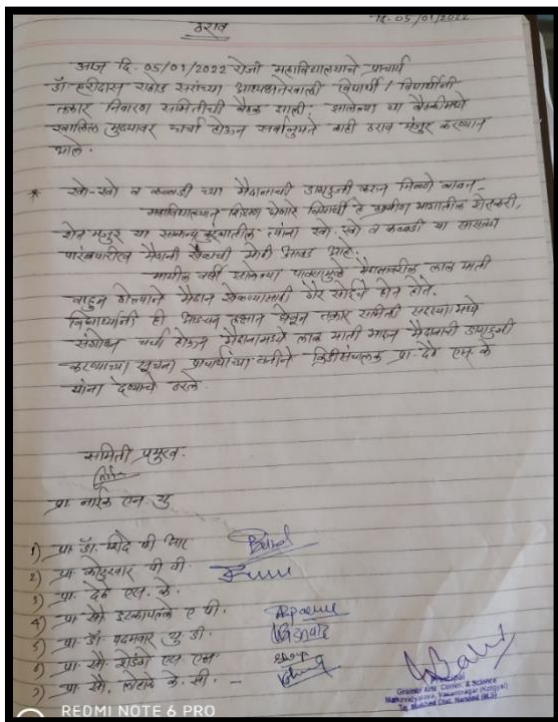 ठराव
दि. 05/01/2022
आज दि. 05/01/2022 रोजी महाविद्यालयाचे प्राचार्य
डॉ हरीदास राठोड सरांच्या अध्यक्षतेखाली विद्यार्थी / विद्यार्थीनी
तक्रार निवारण समितीची बैठक झाली. झालेल्या या बैठकीमध्ये
खालील मुद्यावर चर्चा होऊन सर्वानुमते काही ठराव मंजुर करण्यात
आले.
* खो-खो व कब्बडी च्या मैदानाची डागडुजी करून मिळणे बाबत -
महाविद्यालयात शिक्षण घेणारे विद्यार्थी हे ग्रामीण भागातील शेतकरी,
शेत मजुर या सामान्य कुटुंबातील त्यांना खो. खो व कब्बडी या सारख्या
पारंपारीक मैदानी खेळाची मोठी आवड आहे.
मागील वर्षी झालेल्या पावसामुळे मैदानावरील लाल माती
वाहून गेल्याने मैदान खेळण्यासाठी गैर सोईचे होत होते.
विद्यार्थ्यांनी ही अडचण लक्षात घेवून तक्रार समिती सदस्या मध्ये
चर्चा होऊन मैदानामध्ये लाल माती भरून मैदानाची डागडुजी
करण्याच्या सूचना प्राचार्यांच्या वतीने क्रिडासंचालक प्रा. देठे एम. के
यांना देण्याचे ठरले.
समिती प्रमुख.
प्रा नाईक एन यु
1) प्रा. डॉ. शिंदे पी आर
2) प्रा पी वी.
3) प्रा. देठे एम. के.
4) प्रा सौ ए पी.
5) प्रा. डॉ. पदमवार यु डी.
6) प्रा सौ एस एम
7) प्रा सौ. के. सी. -
Principal
Gramin Arts, Comm. & Science
Mahavidyalaya, Vasantnagar (Kotgyal)
Tq. Mukhed Dist. Nanded (M.S)
REDMI NOTE 6 PRO